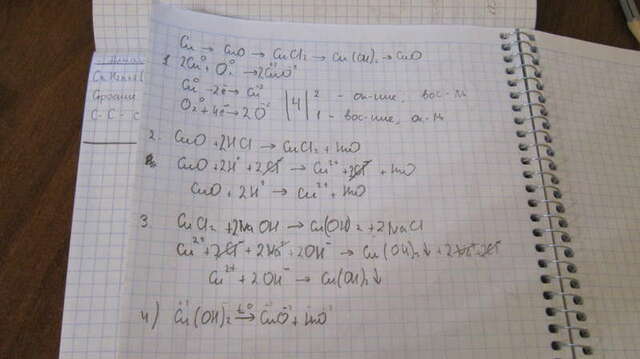 Cu → CuO → CuCl2 → Cu(OH)2 → CuO
1. 2Cu⁰ + O2⁰ → 2CuO
Cu⁰ - 2ē → Cu⁺² | 4 | 2 - ок-ние, вос-ль
O2⁰ + 4ē → 2O⁻² 1 - вос-ние, ок-ль
2. CuO + 2HCl → CuCl2 + H2O
CuO + 2H⁺ + 2Cl⁻ → Cu²⁺ + 2Cl⁻ + H2O
CuO + 2H⁺ → Cu²⁺ + H2O
3. CuCl2 + 2NaOH → Cu(OH)2 + 2NaCl
Cu²⁺ + 2Cl⁻ + 2Na⁺ + 2OH⁻ → Cu(OH)2↓ + 2Na⁺ + 2Cl⁻
Cu²⁺ + 2OH⁻ → Cu(OH)2↓
4) Cu(OH)2 t⁰→ CuO + H2O
С - С - С